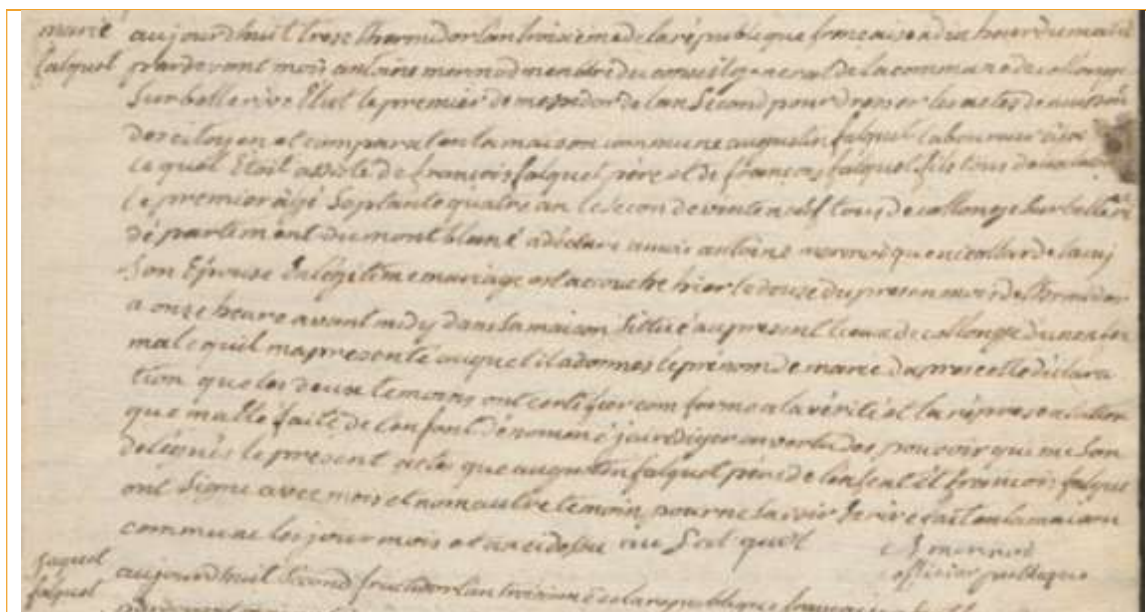 marie aujourdhuit treze thermidor lan troisieme de la république francaise a dix heures du matin
falquet pardevant mois antoine monnod menbre du conseil general de la commune de collonge
Sur bellerive Elut le premier de messidor de lan Second pour dresser les actes de naissance
des citoyen et comparat en la maison commune augustin falquet laboureur
le quel Etoit assisté de francois falquet père et de francois falquet fils tous deux
le premier agé Septante quatre an le second vente neuf tous de collonge Sur bellerive
département du mont blanc a déclaré a mois antoine monnod que nicollarde
Son Epouse En légitime mariage est accouché hier le douze du presen mois de thermidor
a onze heure avant midy dans sa maison Situé au present lieux de collonge dun enfan
male quil ma presenté auquel il a donner le prénom de marie dapres cette déclara
tion que les deux temoins ont certifier comforme a la vérité et la représentation
que malle faite de lenfant dénommé jai rédiger en vertu des pouvoir qui me son
delégués le present actes que augustin falquet père de lenfent et francois falquet
ont Signe avec mois et non autre temoin pour ne savoir Ecrire fait en la maison
commune les jour mois et an cidessu
monnod
officier publique
falquet aujourdhuit Second fructidor lan troisieme de la republique francaise